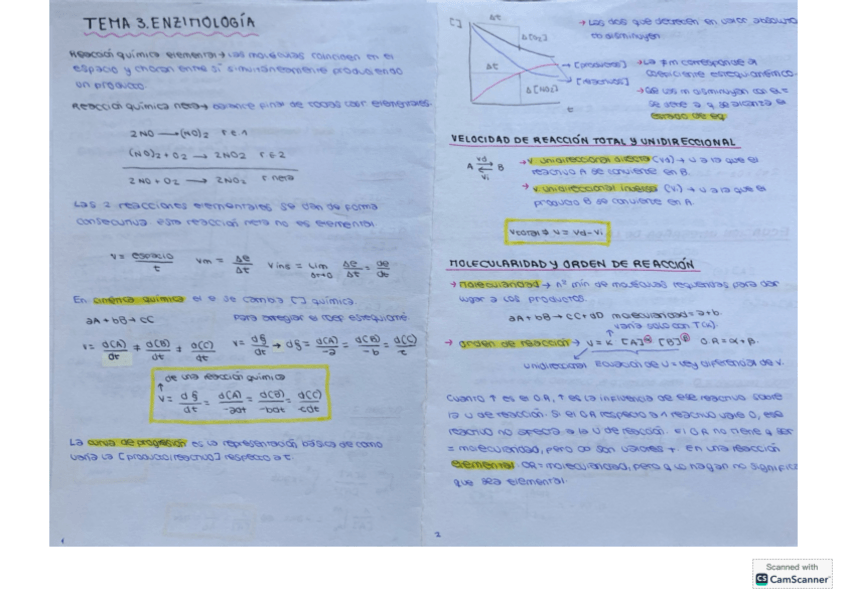 TEMA 3. ENZIMOLOGÍA
Reacción química elemental → las moléculas coinciden en el
espacio y chocan entre sí simultáneamente produciendo
un producto.
Reacción química neta → balance final de todas las elementales.
2NO → (NO)2 r e 1
(NO)2 + O2 → 2NO2 r e 2
2NO + O2 → 2NO2 r neta
Las 2 reacciones elementales se dan de forma
consecutiva, esta reacción neta no es elemental
v = espacio/t vm = Δe/Δt vins = lim Δt→0 Δe/Δt = de/dt
En cinética química el e se cambia [] química.
aA + bB → cC para arreglar el coef estequiomé.
v = d(A)/dt ≠ d(B)/dt ≠ d(C)/dt v = dξ/dt → dξ = d(A)/-a = d(B)/-b = d(C)/c
de una reacción química
v = dξ/dt = d(A)/-adt = d(B)/-bdt = d(C)/cdt
La curva de progresión es la representación básica de como
varía la [producto/reactivo] respecto a t.
1
[ ]
Δt
Δ[O2]
Δt
Δ[NO2]
[productos]
[reactivos]
t
→ Las dos que decrecen en valor absoluto
→ La ≠ m corresponde al
coeficiente estequiomérico.
se debe a q se alcanza el
estado de eq
VELOCIDAD DE REACCIÓN TOTAL Y UNIDIRECCIONAL
A vd ⇄ vi B
→ v unidireccional directa (vd) → v a la que el
reactivo A se convierte en B.
→ v unidireccional inversa (vi) → v a la que el
producto B se convierte en A.
v = vd - vi
MOLECULARIDAD Y ORDEN DE REACCIÓN
→ molecularidad → nº mín de moléculas requeridas para dar
lugar a los productos.
aA + bB → cC + dD molecularidad = a + b.
varía solo con T(K).
→ orden de reacción → v = K [A]^α [B]^β O.R = α + β.
unidireccional Ecuación de v = ley diferencial de v.
Cuanto ↑ es el O.R, ↑ es la influencia de ese reactivo sobre
la v de reacción. Si el OR respecto a 1 reactivo vale 0, ese
reactivo no afecta a la v de reacción. El OR no tiene q ser
= molecularidad, pero son valores +. En una reacción
elemental OR = molecularidad, pero q lo hagan no significa
que sea elemental.
2
Scanned with
CS CamScanner